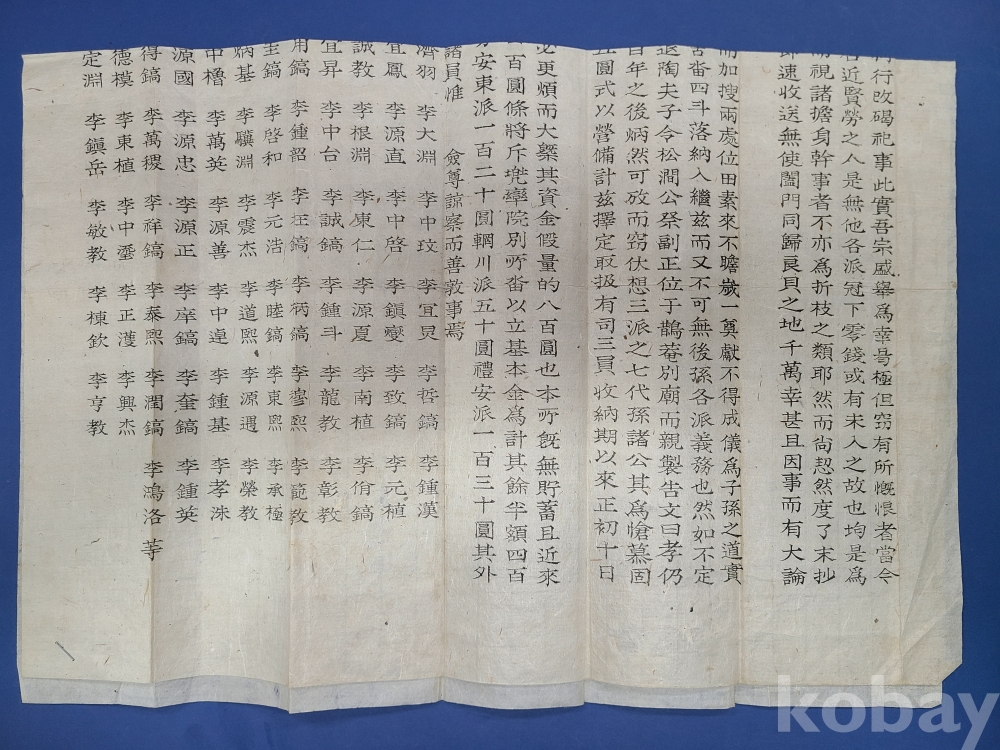 行改碣祀事此實吾宗盛擧爲幸曷極但窃有所慨恨者當今
近賢勞之人是無他各派冠下零錢或有未入之故也均是爲
視諸擔身幹事者不亦爲折枝之類耶然而尙恝然度了末抄
卽速收送無使闔門同歸良貝之地千萬幸甚且因事而有大論
而加搜兩處位田素來不贍歲一奠獻不得成儀爲子孫之道實
沓四斗落納入繼玆而又不可無後孫各派義務也然如不定
退陶夫子令松澗公祭副正位于鵲菴別廟而親製告文曰孝仍
百年之後炳然可放而窃伏想三派之七代孫諸公其爲愴慕固
五圓式以營備計玆擇定取扱有司三員收納期以來正初十日
必更煩而大槩其資金假量的八百圓也本所旣無貯蓄且近來
百圓條將斥堯學院別所畓以立基本金爲計其餘半額四百
安東派一百二十圓輞川派五十圓禮安派一百三十圓其外
諸員惟 僉尊諒察而善敦事焉
濟羽 李大淵 李中玟 李宜炅 李哲鎬 李鍾漢
宜鳳 李源直 李中啓 李鎭燮 李致鎬 李元稙
誠教 李根淵 李康仁 李源夏 李南植 李佾鎬
宜昇 李中台 李誠鎬 李鍾斗 李龍教 李彰教
用鎬 李鍾韶 李在鎬 李炳鎬 李瑬熙 李範教
圭鎬 李啓和 李元浩 李睦鎬 李東熙 李承極
炳基 李驥淵 李震杰 李道熙 李源遇 李榮教
中櫓 李萬英 李源善 李中逴 李鍾基 李孝洙
源國 李源忠 李源正 李庠鎬 李奎鎬 李鍾英
得鎬 李萬稷 李祥鎬 李泰熙 李潤鎬 李鴻洛 等
德模 李東植 李中瀅 李正濩 李興杰
定淵 李鎭岳 李敏教 李棟欽 李亨教
kobay